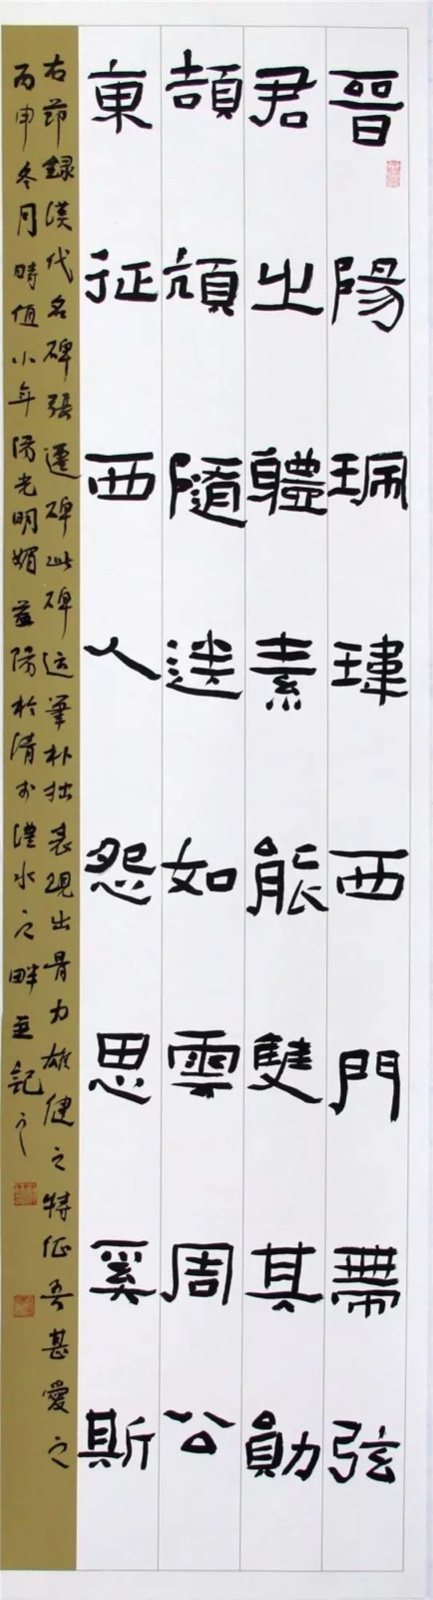 晉陽珮瑋西門帶弦
君之軆素能雙其勛
頡頏隨送如雲周公
東征西人怨思奚斯
右節録漢代名碑張遷碑此碑运筆朴拙表現出骨力雄健之特征吾甚愛之
丙申冬月時值小年陽光明媚益陽於清水漢水之畔並記之